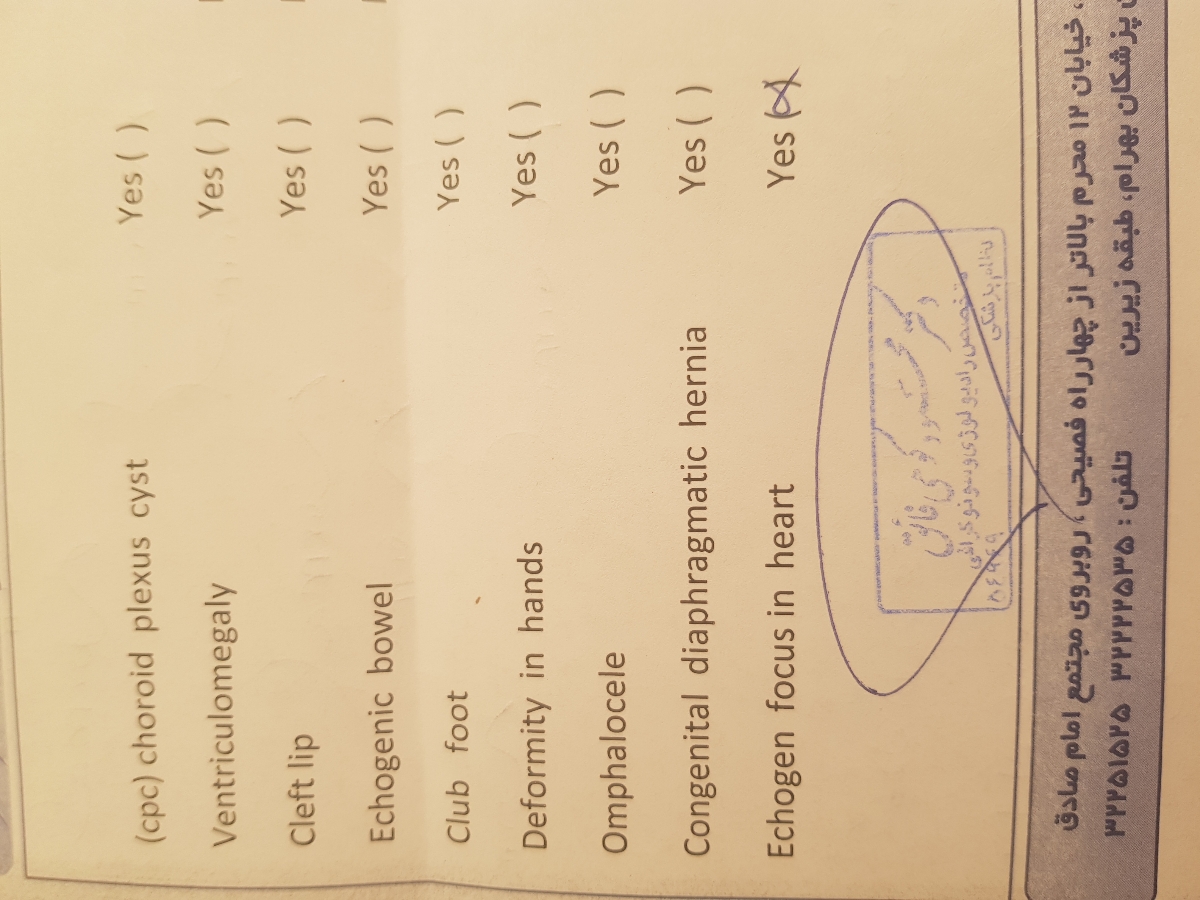 (cpc) choroid plexus cyst Yes ( )
Ventriculomegaly Yes ( )
Cleft lip Yes ( )
Echogenic bowel Yes ( )
Club foot Yes ( )
Deformity in hands Yes ( )
Omphalocele Yes ( )
Congenital diaphragmatic hernia Yes ( )
Echogen focus in heart Yes (x)
متخصص رادیولوژی و سونوگرافی
نظام پزشکی
، خیابان ۱۲ محرم بالاتر از چهارراه فصیحی ، روبروی مجتمع امام صادق
پزشکان بهرام، طبقه زیرین تلفن : ۳۲۲۲۲۵۳۵ ۳۲۲۵۱۵۲۵